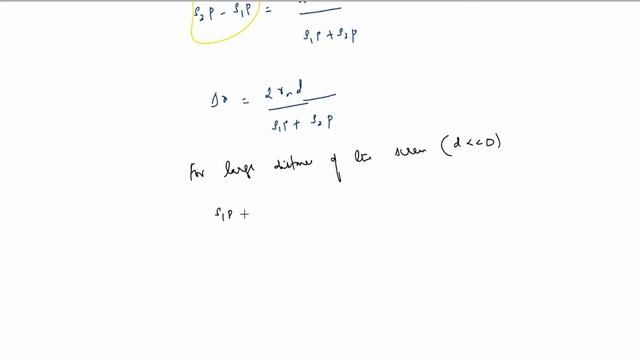 S₂P - S₁P =
S₁P + S₂P
Δx = 2 xₙ d
S₁P + S₂P
For large distance of the screen (d << D)
S₁P +